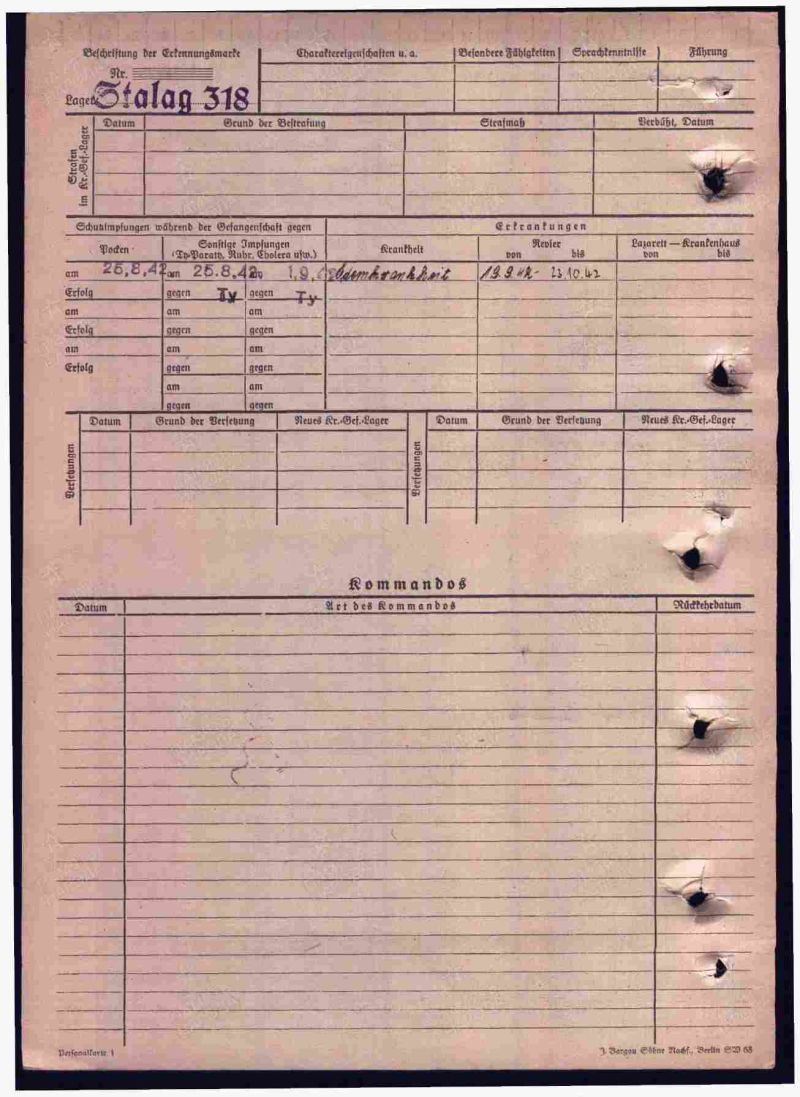 Beschriftung der Erkennungsmarke Charaktereigenschaften u. a. Besondere Fähigkeiten Sprachkenntnisse Führung
Nr.
Lager: Stalag 318
Strafen im Kr.-Gef.-Lager
Datum Grund der Bestrafung Strafmaß Verbüßt, Datum
Schutzimpfungen während der Gefangenschaft gegen Erkrankungen
Pocken Sonstige Impfungen (Ty-Paraty, Ruhr, Cholera usw.) Krankheit Revier von bis Lazarett — Krankenhaus von bis
am 25.8.42 am 25.8.42 1.9. 19.9.42 - 23.10.42
Erfolg gegen Ty gegen Ty
am am am
Erfolg gegen gegen
am am am
Erfolg gegen gegen
am am
gegen gegen
Versetzungen
Datum Grund der Versetzung Neues Kr.-Gef.-Lager
Versetzungen
Datum Grund der Versetzung Neues Kr.-Gef.-Lager
Kommandos
Datum Art des Kommandos Rückkehrdatum
Personalkarte I J. Bargou Söhne Nachf., Berlin SW 68